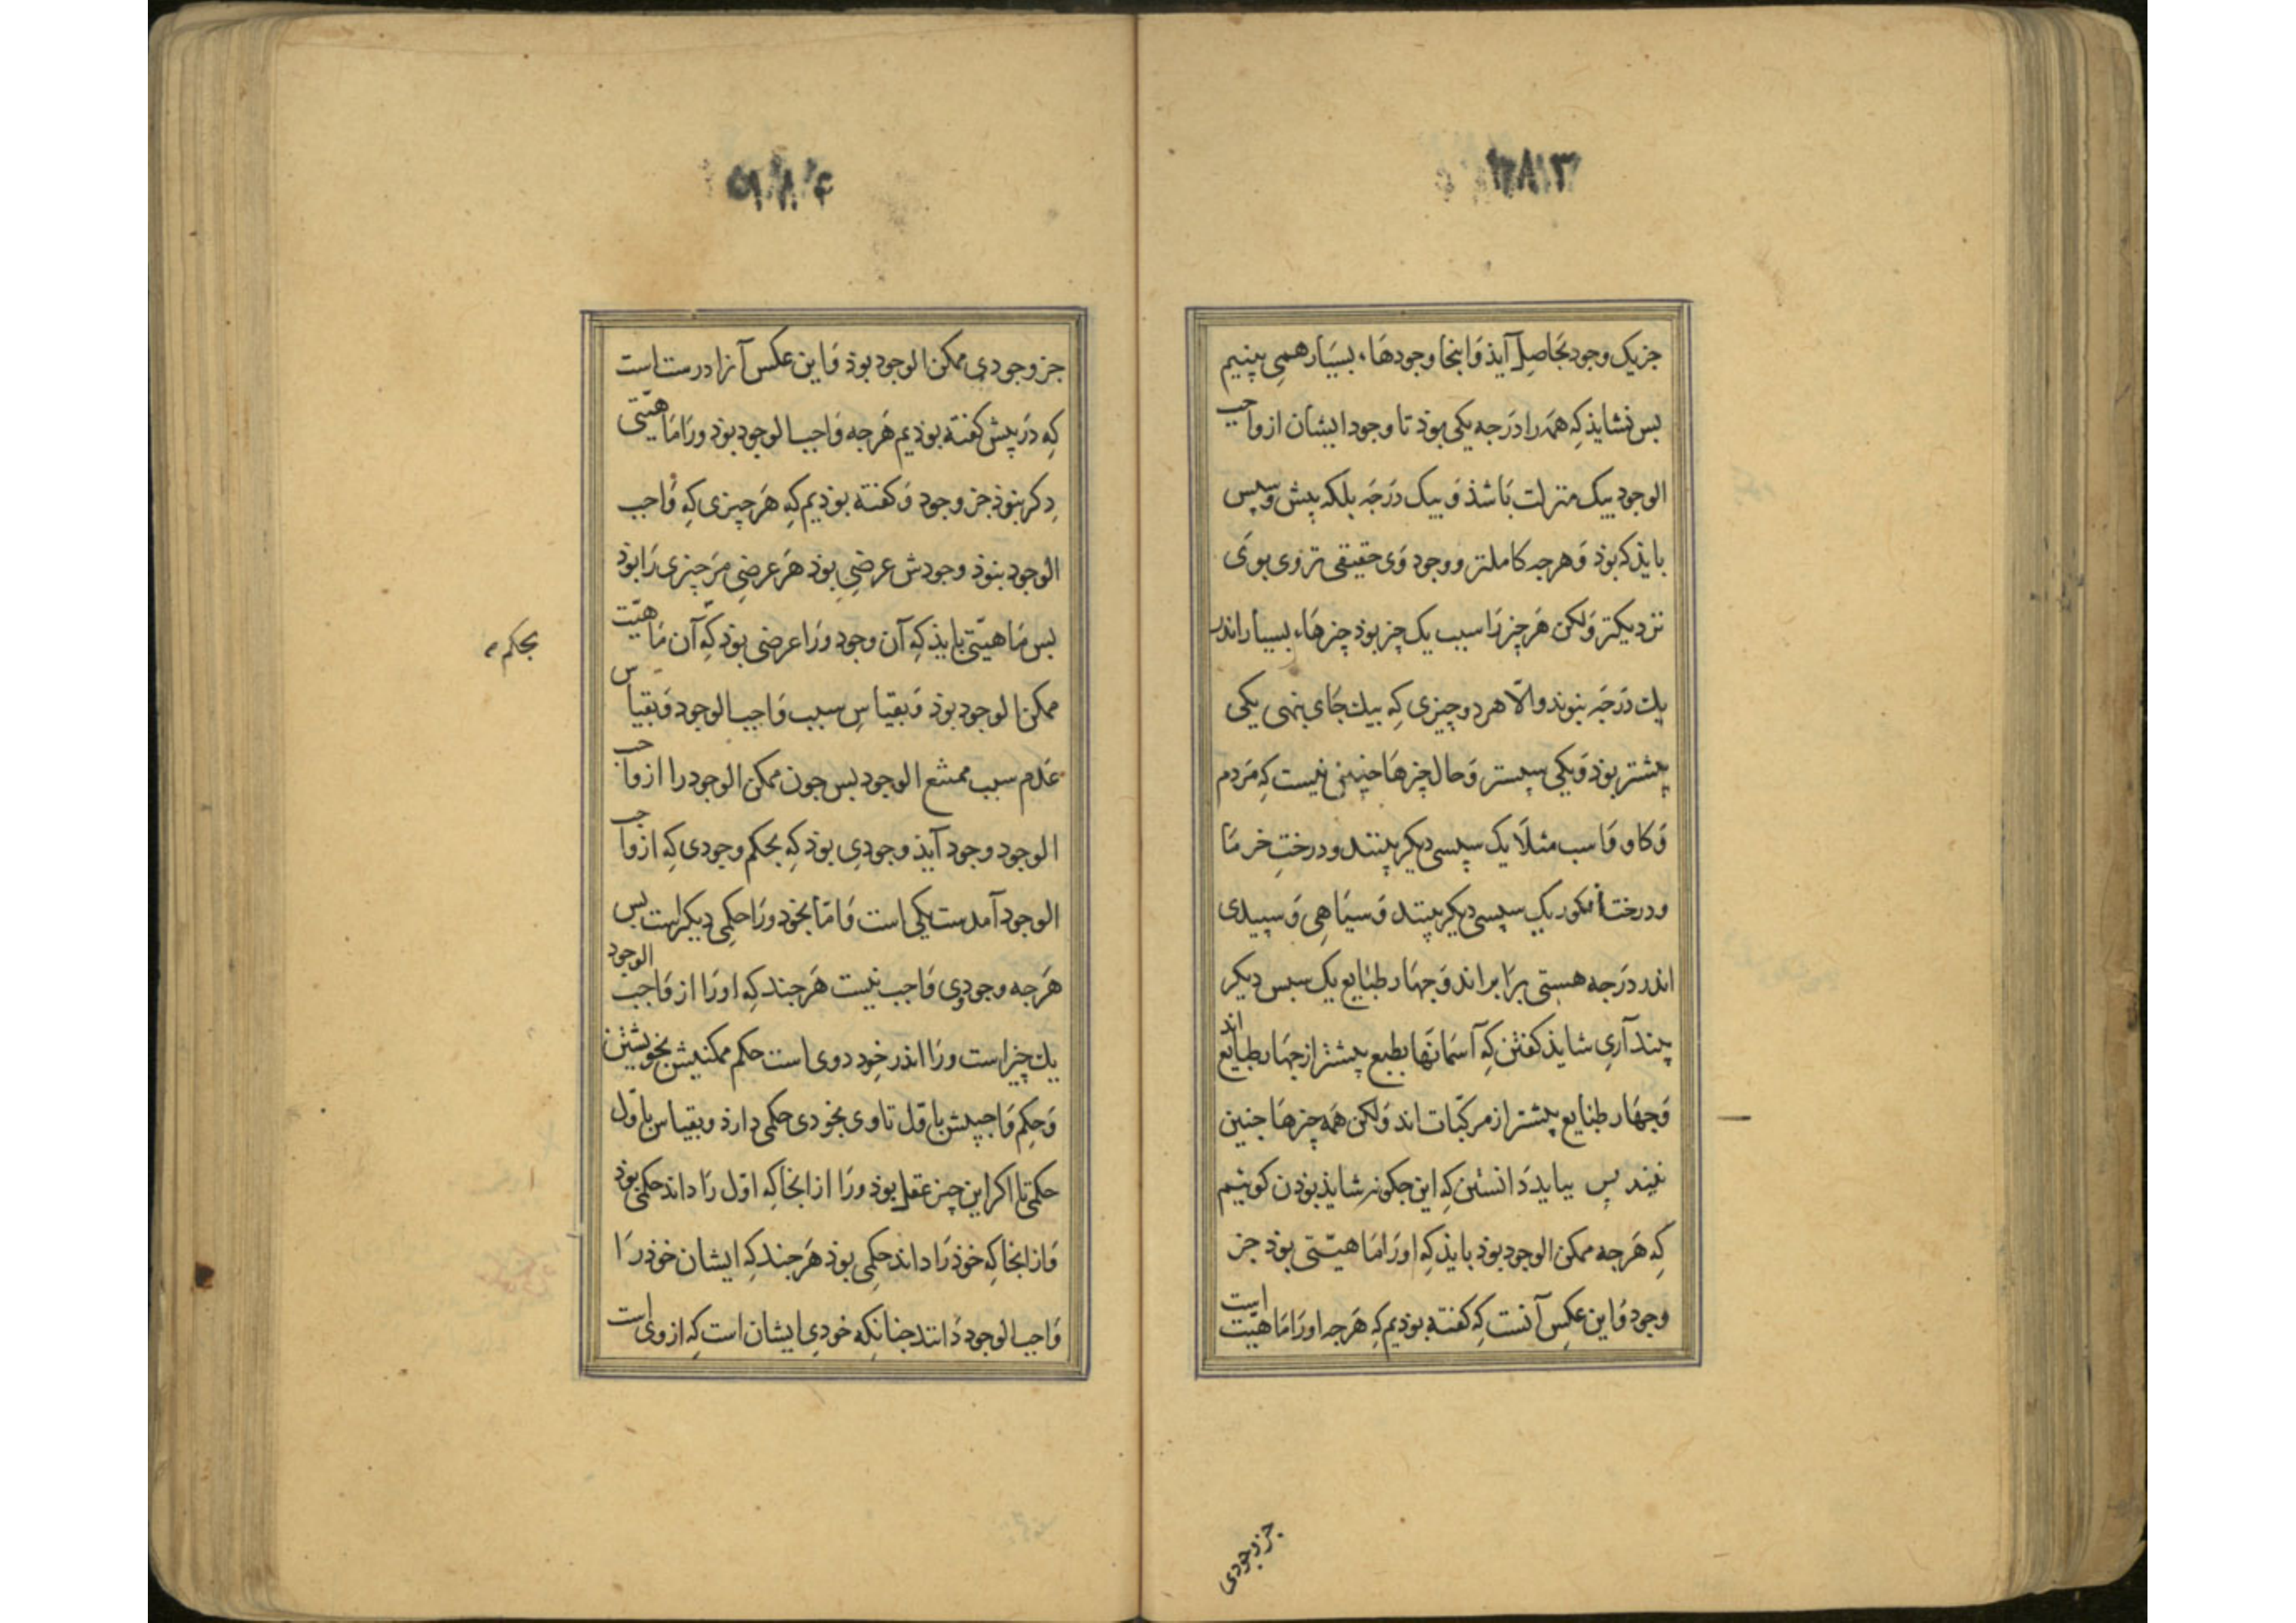 جز یک وجود بحاصل آیذ وَاینجا وجودهَاء بسیَار همی بینیم
بس نشایذ کِه همَه را درَجه یکی بوذ تا وجود ایشان از واجب
الوجود بیک منزلت بَاشذ وَ بیک درَجَه بلکه پیش وسپس
بایذ که بوذ وَ هرجه کاملتر و وجود وَی حقیقی تر وی بوَی
نزدیکتر وَلکن هَر چیز رَا سبب یک چیز بوذ چیزهَاء بسیار اندر
یك درَجَه نبوند والّا هر دو چیزی کِه بیك جَای بنهی یکی
پیشتر بوذ وَ یکی سپستر وَ حال چیزهَا چنین نیست کِه مَردم
وَ کاو وَ اسب مثلًا یک سپسی دیکر بینند و درختِ خرمَا
و درخت انکور یک سپسی دیکر بینند وَ سیَاهِی وَ سپیدی
اندر درَجه هستی برَابراند وَ جهَار طبَایع یک سپس دیکر
بیند آرِی شایذ کفتن کِه آسمَانهَا بطبع پیشتر از جهَار طبَایع اند
وَ جهَار طبَایع پیشتر از مرکّبات اند وَلکن همَه چیزهَا جنین
نیند پس ببایذ دَانستن کِه این جکونه شایذ بوذن کوئیم
کِه هَرجه ممکن الوجود بوذ بایذ کِه اورَا مَاهیّتی بوذ جز
وجود وَاین عکس آنست کِه کفته بوذیم کِه هَرجه اورَا مَاهیّت است
جز وجودی
جز وجودی ممکن الوجود بوذ وَاین عکس آنرا درست است
کِه درَ پیش کفته بوذیم هَرجه وَاجب الوجود بوذ ورَا مَاهیّتی
دِکر نبوذ جز وجود وَ کفته بوذیم کِه هَر چیزی کِه وَاجب
الوجود نبوذ وجودش عرضِی بوذ هَر عرضِی مَر چیزی رَا بوذ
بس مَاهیّتی بایذ کِه آن وجود ورَا عرضی بوذ کِه آن مَاهیّت
بحکم
ممکن الوجود بوذ وَ بقیاسِ سبب وَاجب الوجود وَ بقیاس
عَدم سبب ممتنع الوجود بس جون ممکن الوجود را از واجب
الوجود وجود آیذ وجودِی بوذ کِه بحکم وجودی کِه از واجب
الوجود آمدست یکی است وَامَّا بخود ورَا حکمِی دیکر است بس
هَرجه وجودِ وی وَاجب نیست هَرجند کِه اورَا از وَاجب الوجود
یك چیز است ورَا اندر خود دوی است حکم ممکنیش بخویشتن
وَحکِم وَاجبیش باوّل تا وی بخودی حکمی دارذ و بقیاس باوّل
حکمی تا اکر این چیز عقل بوذ ورَا از انجا کِه اوّل رَا داند حکمی بوذ
وَاز انجا کِه خوذ رَا داند حکِمی بوذ هَرجند کِه ایشان خوذ رَا
وَاجب الوجود دَانند جنانکِه خودیِ ایشان است کِه از وی است